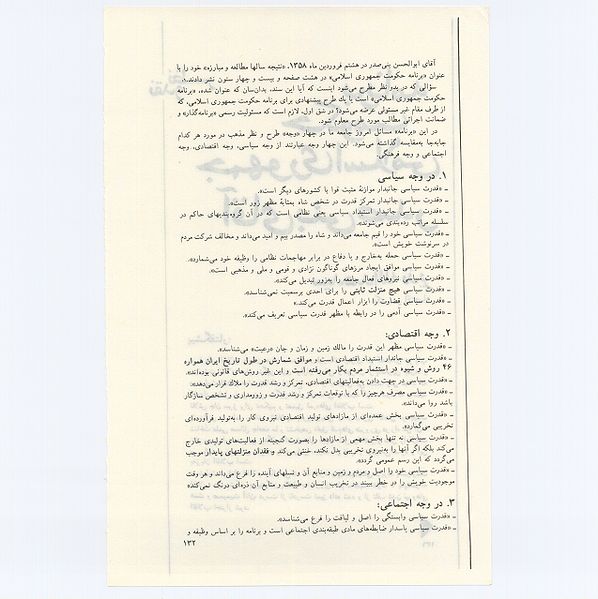 آقای ابوالحسن بنی‌صدر در هشتم فروردین ماه ۱۳۵۸، «نتیجه سالها مطالعه و مبارزه» خود را با
عنوان «برنامه حکومت جمهوری اسلامی» در هشت صفحه و بیست و چهار ستون نشر دادند.
سؤالی که در بدو نظر مطرح می‌شود اینست که آیا این سند، بدان‌سان که عنوان شده، «برنامه
حکومت جمهوری اسلامی» است یا یک طرح پیشنهادی برای برنامه حکومت جمهوری اسلامی، که
از طرف مقام غیر مسئولی عرضه می‌شود؟ در شق اول، لازم است که مسئولیت رسمی «برنامه‌گذار» و
ضمانت اجرائی مطالب مورد طرح معلوم شود.
در این «برنامه» مسائل امروز جامعه ما در چهار «وجه» طرح و نظر مذهب در مورد هر کدام
جابه‌جا به‌مقایسه گذاشته می‌شود. این چهار وجه عبارتند از وجه سیاسی، وجه اقتصادی، وجه
اجتماعی و وجه فرهنگی.
۱. در وجه سیاسی
ـ «قدرت سیاسی جانبدار موازنهٔ مثبت قوا با کشورهای دیگر است».
ـ «قدرت سیاسی جانبدار تمرکز قدرت در شخص شاه بمثابهٔ مظهر زور است».
ـ «قدرت سیاسی جانبدار استبداد سیاسی یعنی نظامی است که در آن گروه‌بندیهای حاکم در
سلسله مراتب رده‌بندی می‌شوند».
ـ «قدرت سیاسی خود را قیم جامعه می‌داند و شاه را مصدر بیم و امید می‌داند و مخالف شرکت مردم
در سرنوشت خویش است».
ـ «قدرت سیاسی حمله به‌خارج و یا دفاع در برابر مهاجمات نظامی را وظیفه خود می‌شمارد».
ـ «قدرت سیاسی موافق ایجاد مرزهای گوناگون نژادی و قومی و ملی و مذهبی است».
ـ «قدرت سیاسی نیروهای فعال جامعه را به‌زور تبدیل می‌کند».
ـ «قدرت سیاسی هیچ منزلت ثابتی را برای احدی برسمیت نمی‌شناسد».
ـ «قدرت سیاسی قضاوت را ابزار اعمال قدرت می‌کند».
ـ «قدرت سیاسی آدمی را در رابطه با مظهر قدرت سیاسی تعریف می‌کند».
۲. وجه اقتصادی:
ـ «قدرت سیاسی مظهر این قدرت را مالک زمین و زمان و جان «رعیت» می‌شناسد».
ـ «قدرت سیاسی جاندار استبداد اقتصادی است و موافق شمارش در طول تاریخ ایران همواره
۴۶ روش و شیوه در استثمار مردم بکار می‌رفته است و این غیر روش‌های قانونی بوده‌اند».
ـ «قدرت سیاسی در جهت دادن به‌فعالیتهای اقتصادی، تمرکز و رشد قدرت را ملاک قرار می‌دهد».
ـ «قدرت سیاسی مصرف هرچیز را که با توقعات تمرکز و رشد قدرت و زورمداری و تشخص سازگار
باشد روا می‌داند».
ـ «قدرت سیاسی بخش عمده‌ای از مازادهای تولید اقتصادی نیروی کار را به‌تولید فرآورده‌ای
تخریبی می‌گمارد».
ـ «قدرت سیاسی نه تنها بخش مهمی از مازادها را بصورت گنجینه از فعالیت‌های تولیدی خارج
می‌کند بلکه اگر آنها را به‌نیروی تخریبی بدل نکند، خنثی می‌کند و فقدان منزلتهای پایدار موجب
می‌گردد که این رسم عمومی گردد».
ـ «قدرت سیاسی خود را اصل و مردم و زمین و منابع آن و نسلهای آینده را فرع می‌داند و هر وقت
موجودیت خویش را در خطر ببیند در تخریب انسان و طبیعت و منابع آن ذره‌ای درنگ نمی‌کند»
۳. در وجه اجتماعی:
ـ «قدرت سیاسی وابستگی را اصل و لیاقت را فرع می‌شناسد».
ـ «قدرت سیاسی پاسدار ضابطه‌های مادی طبقه‌بندی اجتماعی است و برنامه را بر اساس وظیفه و
۱۳۲